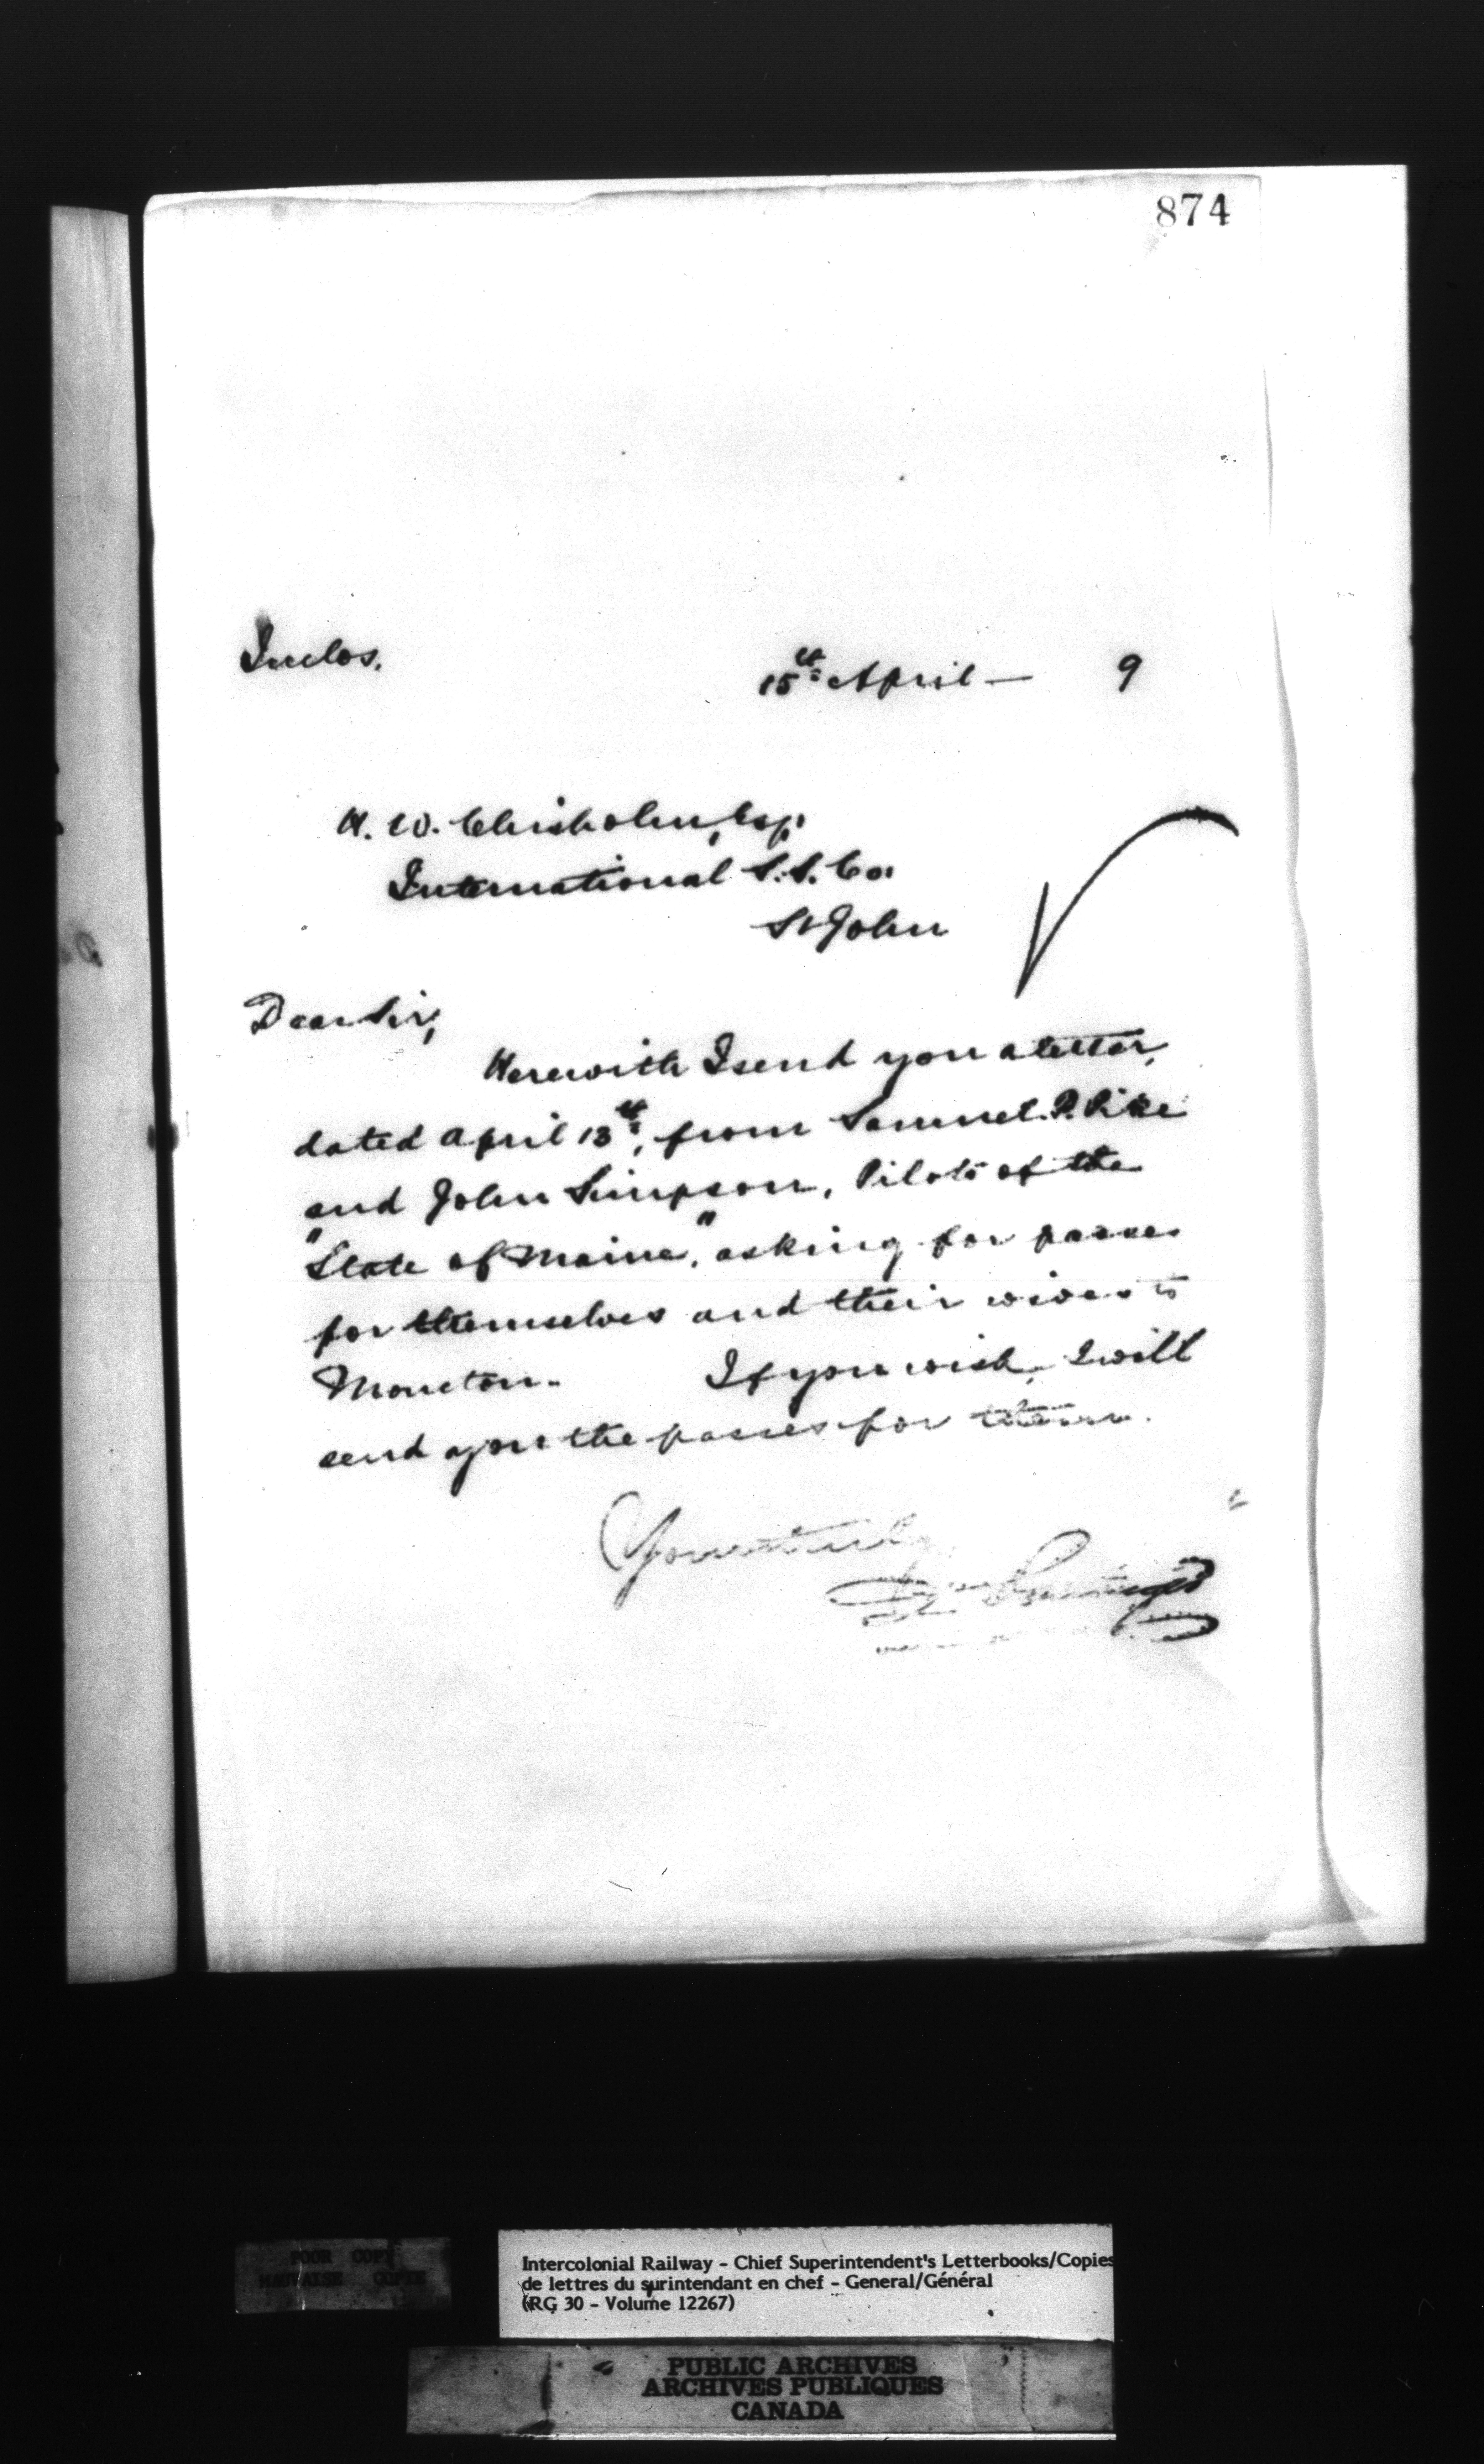 874
Inclos.
15th April — 9
H. W. Chisholm, Esq,
International S.S. Co.
St John
Dear Sir,
Herewith I send you a letter,
dated April 13th, from Samuel P. Pike
and John Simpson, Pilots of the
"State of Maine," asking for passes
for themselves and their wives to
Moncton. If you wish, I will
send you the passes for them.
Yours truly
POOR COPY
MAUVAISE COPIE
Intercolonial Railway - Chief Superintendent's Letterbooks/Copies
de lettres du surintendant en chef - General/Général
(RG 30 - Volume 12267)
PUBLIC ARCHIVES
ARCHIVES PUBLIQUES
CANADA